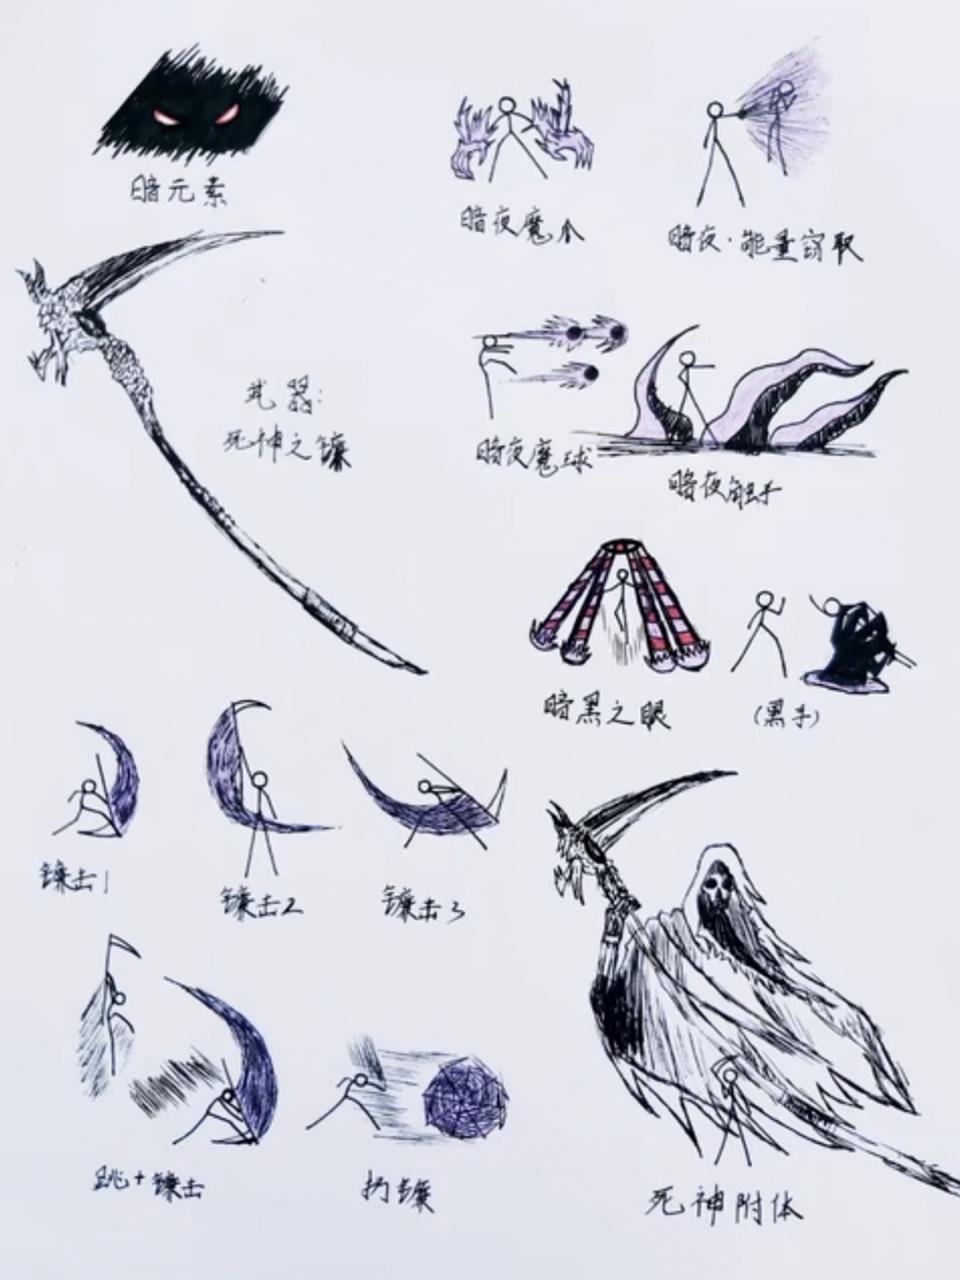 暗元素
暗夜魔爪
暗夜·能量窃取
武器:
死神之镰
暗夜魔球
暗夜触手
暗黑之眼
(黑手)
镰击1
镰击2
镰击3
跳+镰击
扔镰
死神附体